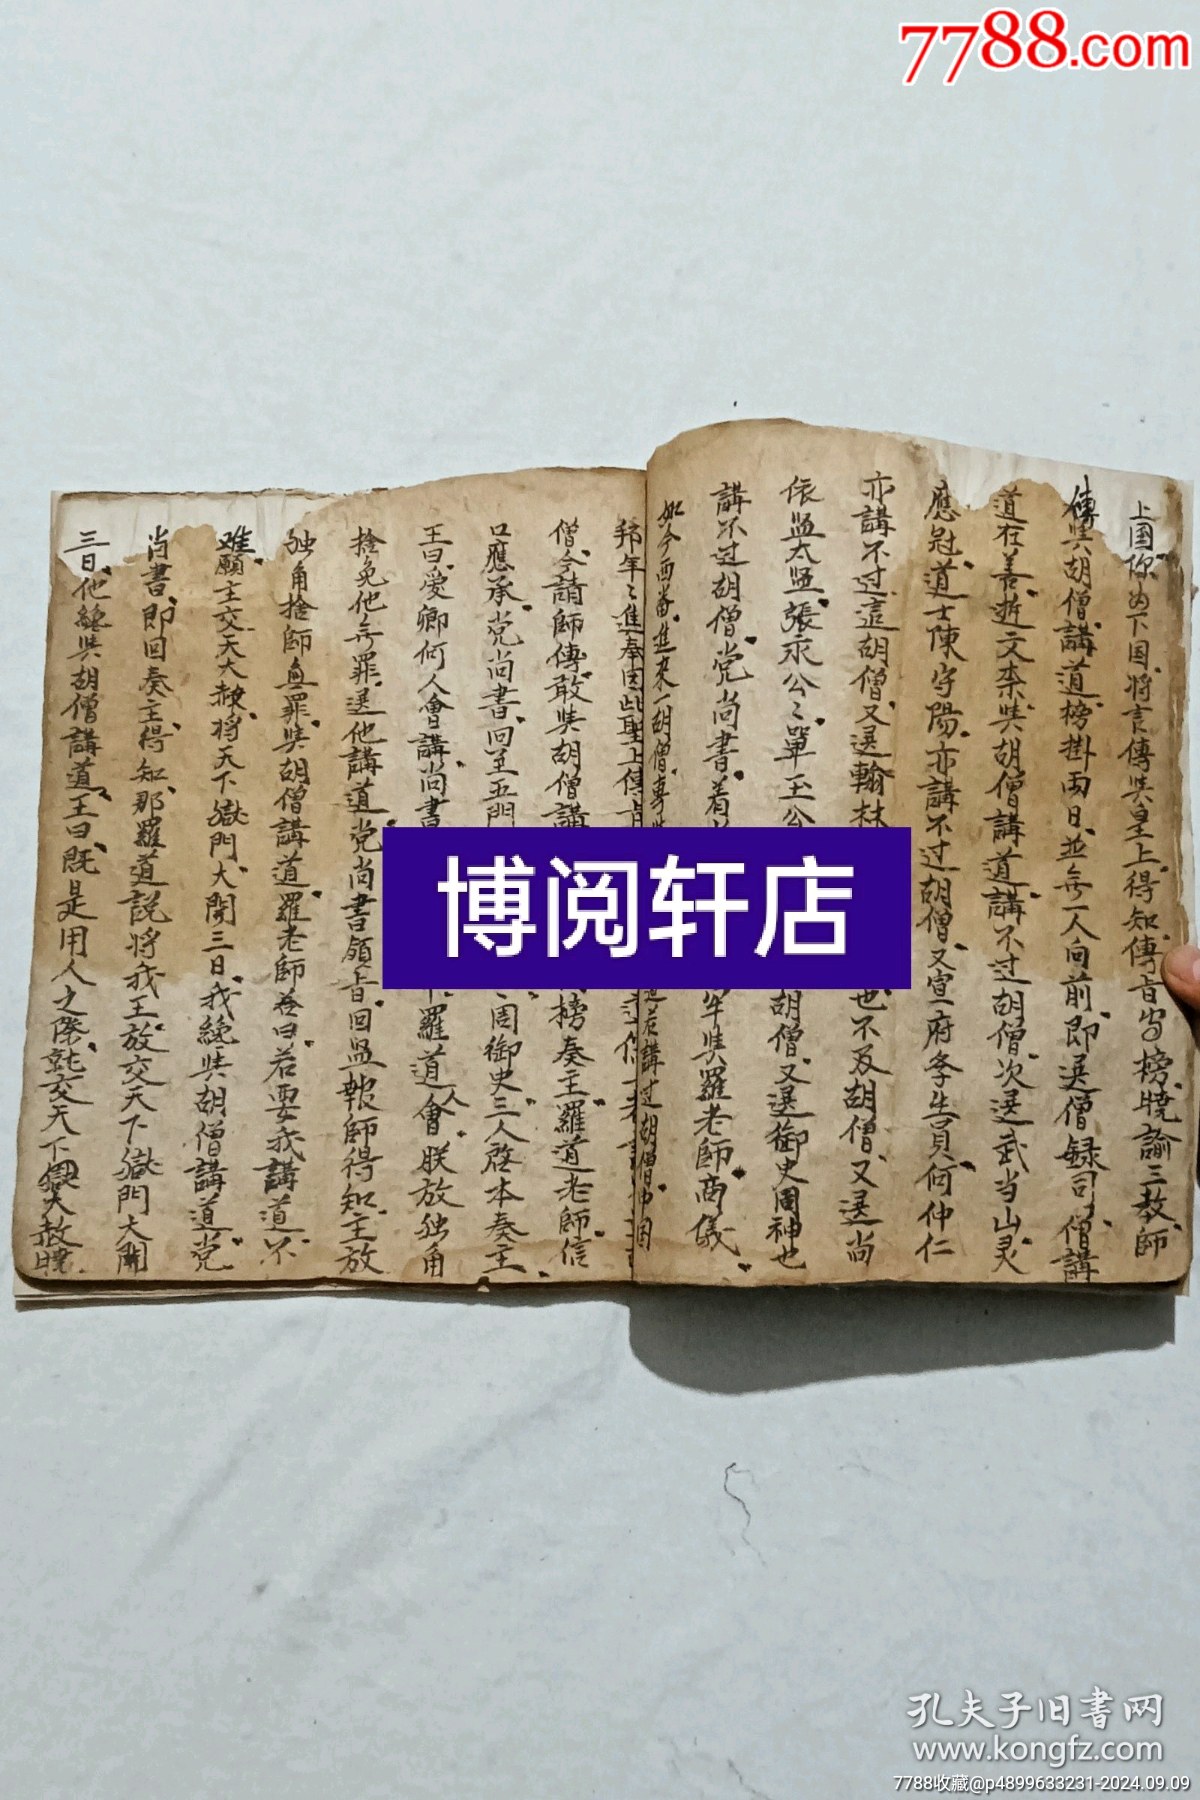 7788.com
上国你为下国将言傳與皇上得知傳旨出榜曉諭三教師
傳與胡僧講道榜掛両日並無一人向前即选僧録司僧講
道在善逝文柰與胡僧講道講不过胡僧次选武当山灵
應冠道士陳守陽亦講不过胡僧又宣一府学生員何仲仁
亦講不过這胡僧又选翰林 也不及胡僧又选尚
依监太监張永公公單玉公 胡僧又选御史周神也
講不过胡僧党尚書着 牢與羅老師商儀
如今西番進来一胡僧專 道若講过胡僧中国
拜年年進奉因此聖上傳旨
僧今請師傳敢與胡僧講 榜奏王羅道老師信
口應承党尚書回至五門 周御史三人啓本奏主
王曰愛卿何人會講尚書 羅道人會朕放独角
捨免他無罪选他講道党尚書領旨回监報師得知主放
独角捨師無罪與胡僧講道羅老師答曰若要我講道不
难願主交天大赦将天下獄門大開三日我纔與胡僧講道党
尚書即回奏主得知那羅道説将我王放交天下獄門大開
三日他纔與胡僧講道王曰既是用人之際就交天下獄大赦
博阅轩店
孔夫子旧书网
www.kongfz.com
7788收藏@p4899633231-2024.09.09